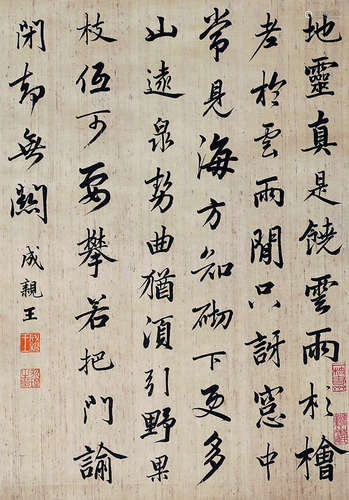 地靈真是饒雲雨杉檜
老於雲雨閒只訝窓中
常見海方知砌下更多
山遠泉勢曲猶須引野果
枝低可要攀若把門諭
閑却無關
成親王